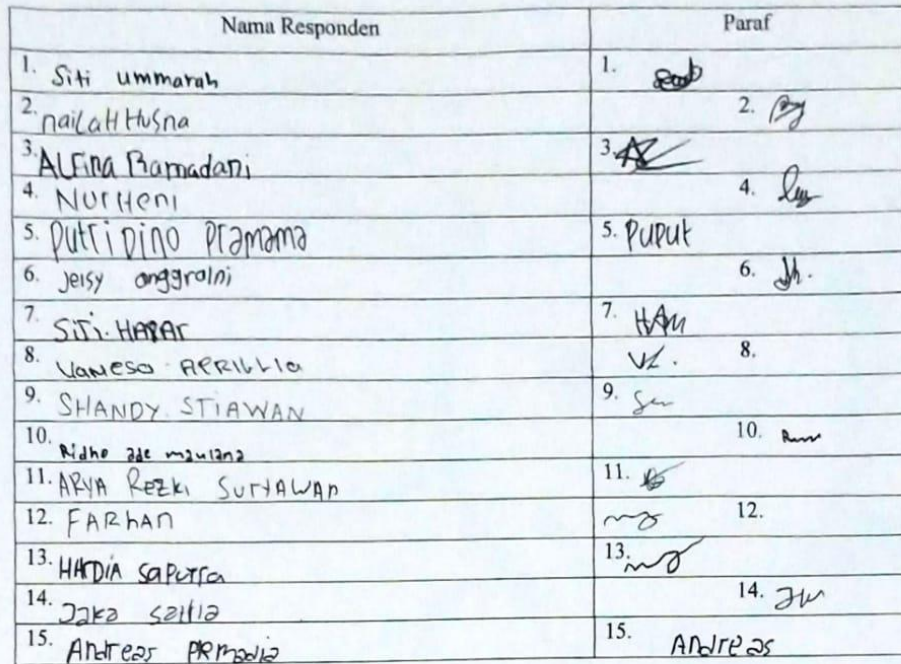 Nama Responden Paraf
1. Siti ummarah 1.
2. naiLaH Husna 2.
3. ALFina Ramadani 3.
4. NurHeni 4.
5. Putri Dino Pramama 5. PUPUt
6. jeisy anggraini 6.
7. SiTi. HAPAT 7.
8. Vanesa APRILLIa 8. VL.
9. SHANDY STIAWAN 9.
10. Ridho ade maulana 10.
11. ARYA REZKI SURYAWAN 11.
12. FARhAN 12.
13. HARDIA SaPUTra 13.
14. Jaka 14.
15. Andreas PRmadia 15. Andreas